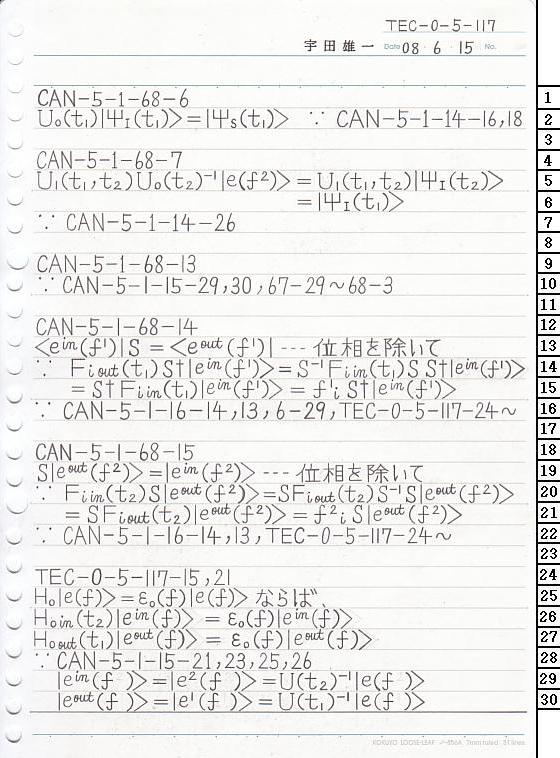 TEC-0-5-117
宇田雄一 Date 08・6・15 No.
CAN-5-1-68-6
U₀(t₁)|Ψ_I(t₁)> = |Ψ_S(t₁)> ∵ CAN-5-1-14-16,18
CAN-5-1-68-7
U_I(t₁,t₂)U₀(t₂)⁻¹|e(f²)> = U_I(t₁,t₂)|Ψ_I(t₂)>
= |Ψ_I(t₁)>
∵ CAN-5-1-14-26
CAN-5-1-68-13
∵ CAN-5-1-15-29,30,67-29～68-3
CAN-5-1-68-14
<e^in(f¹)|S = <e^out(f¹)| --- 位相を除いて
∵ F_i out(t₁)S†|e^in(f¹)> = S⁻¹F_i in(t₁)S S†|e^in(f¹)>
= S†F_i in(t₁)|e^in(f¹)> = f¹_i S†|e^in(f¹)>
∵ CAN-5-1-16-14,13,6-29,TEC-0-5-117-24～
CAN-5-1-68-15
S|e^out(f²)> = |e^in(f²)> --- 位相を除いて
∵ F_i in(t₂)S|e^out(f²)> = SF_i out(t₂)S⁻¹S|e^out(f²)>
= SF_i out(t₂)|e^out(f²)> = f²_i S|e^out(f²)>
∵ CAN-5-1-16-14,13,TEC-0-5-117-24～
TEC-0-5-117-15,21
H₀|e(f)> = ε₀(f)|e(f)> ならば、
H₀in(t₂)|e^in(f)> = ε₀(f)|e^in(f)>
H₀out(t₁)|e^out(f)> = ε₀(f)|e^out(f)>
∵ CAN-5-1-15-21,23,25,26
|e^in(f )> = |e²(f )> = U(t₂)⁻¹|e(f )>
|e^out(f )> = |e¹(f )> = U(t₁)⁻¹|e(f )>
KOKUYO LOOSE-LEAF ノ-836A 7mm ruled 31 lines
1
2
3
4
5
6
7
8
9
10
11
12
13
14
15
16
17
18
19
20
21
22
23
24
25
26
27
28
29
30